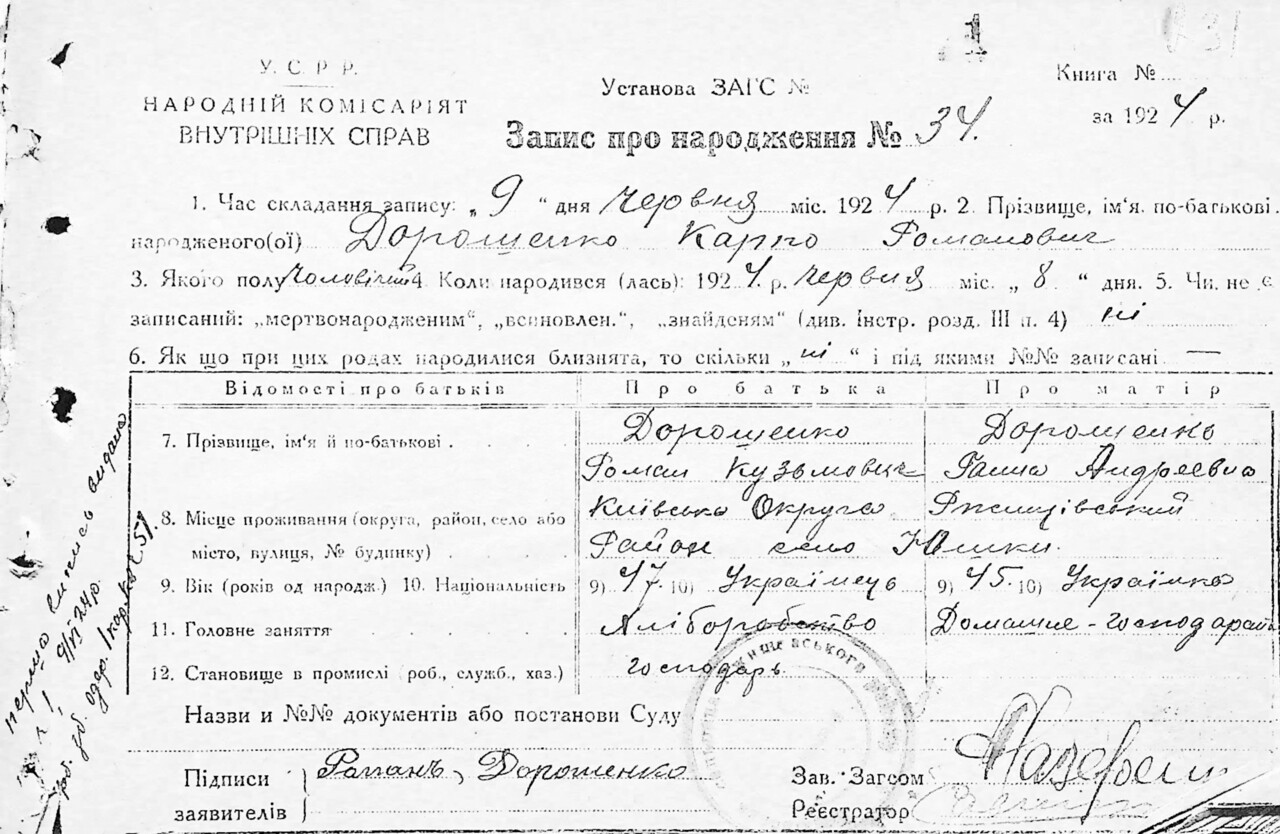 У. С. Р. Р.
НАРОДНІЙ КОМІСАРІЯТ
ВНУТРІШНІХ СПРАВ
1
Установа ЗАГС №
Книга №
за 1924 р.
Запис про народження № 34.
1. Час складання запису: „9“ дня червня міс. 1924 р. 2. Прізвище, ім‘я, по-батькові
народженого(ої) Дорошенко Карпо Романович
3. Якого полу чоловічий 4. Коли народився (лась): 1924. р. червня міс. „8“ дня. 5. Чи не є
записаний: „мертвонародженим“, „всиновлен.“, „знайденям“ (див. Інстр. розд. III п. 4) ні
6. Як що при цих родах народилися близнята, то скільки „ні“ і під якими №№ записані —
Відомості про батьків Про батька Про матір
7. Прізвище, ім‘я й по-батькові Дорошенко Дорошенко
Роман Кузьмович Ганна Андреевна
8. Місце проживання (округа, район, село або Київська Округа Ржищівський
місто, вулиця, № будинку) Район село Юшки.
9. Вік (років од народж.) 10. Національність 9) 47. 10) Українець 9) 45. 10) Українка
11. Головне заняття Хліборобство Домашне-господарств
12. Становище в промислі (роб., служб., хаз.) господарь
Назви и №№ документів або постанови Суду
Підписи
заявителів
Романъ Дорошенко
Зав. Загсом
Реєстратор
випись видано